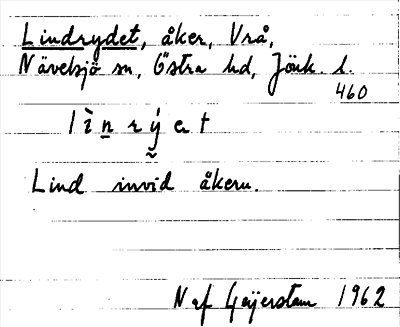 Lindrydet, åker, Vrå,
Nävelsjö sn, Östra hd, Jönk l.
460
l ì n r ý e t
Lind invid åkern.
N af Geijerstam 1962